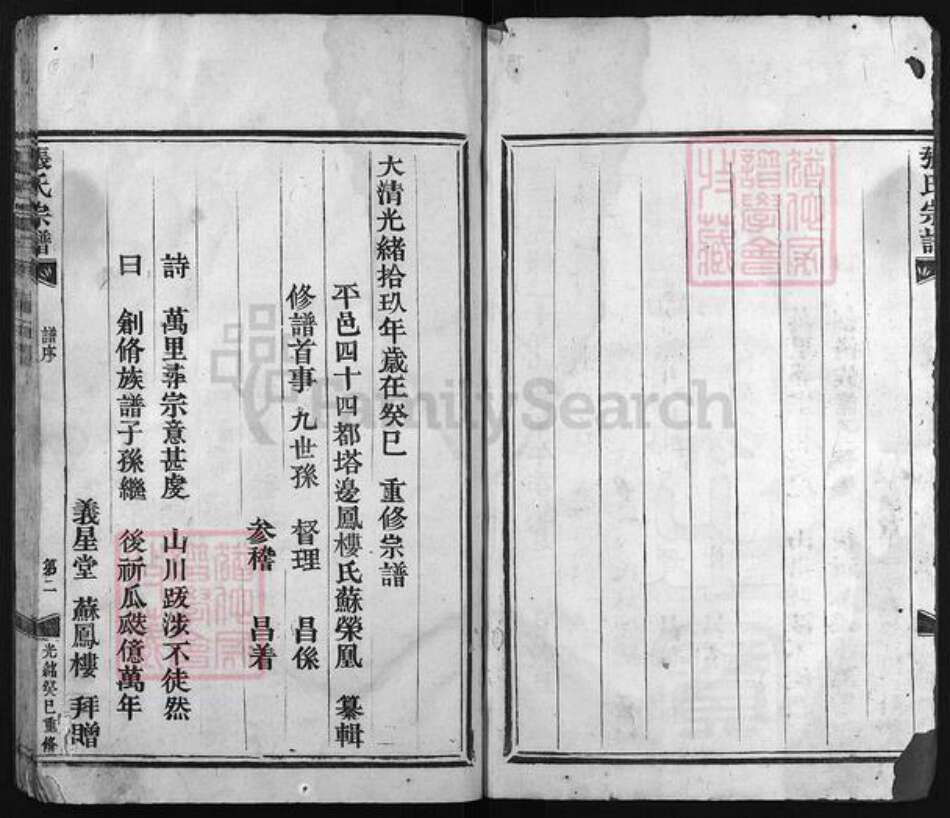 張氏宗譜
大清光緒拾玖年歲在癸巳 重修宗譜
平邑四十四都塔邊鳳樓氏蘇榮凰 纂輯
修譜首事 九世孫 督理 昌係
參稽 昌着
詩 萬里尋宗意甚虔 山川跋涉不徒然
曰 創脩族譜子孫繼 後祈瓜瓞億萬年
義星堂 蘇鳳樓 拜贈
張氏宗譜
譜序
第二
光緒癸巳重脩
FamilySearch